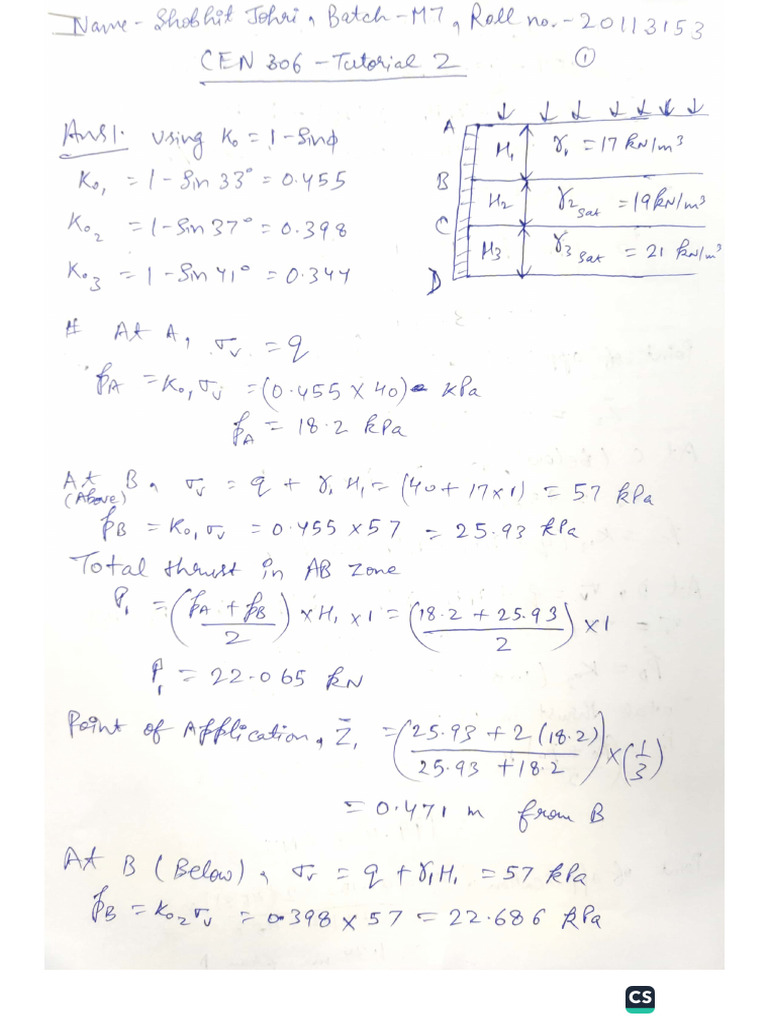 Name - Shobhit Johri, Batch - M7, Roll no. - 20113153
CEN 306 - Tutorial 2
①
Ans1. Using K₀ = 1 - Sinϕ
K₀₁ = 1 - Sin 33° = 0.455
K₀₂ = 1 - Sin 37° = 0.398
K₀₃ = 1 - Sin 41° = 0.344
A
H₁ γ₁ = 17 kN/m³
B
H₂ γ₂ sat = 19 kN/m³
C
H₃ γ₃ sat = 21 kN/m³
D
# At A, σᵥ = q
pA = K₀₁ σᵥ = (0.455 × 40) kPa
pA = 18.2 kPa
At B, σᵥ = q + γ₁ H₁ = (40 + 17×1) = 57 kPa
(Above)
pB = K₀₁ σᵥ = 0.455 × 57 = 25.93 kPa
Total thrust in AB zone
P₁ = ((pA + pB)/2) × H₁ × 1 = ((18.2 + 25.93)/2) × 1
P₁ = 22.065 kN
Point of Application, Z̄₁ = ((25.93 + 2(18.2))/(25.93 + 18.2)) × (1/3)
= 0.471 m from B
At B (Below), σᵥ = q + γ₁H₁ = 57 kPa
pB = K₀₂ σᵥ = 0.398 × 57 = 22.686 kPa
CS